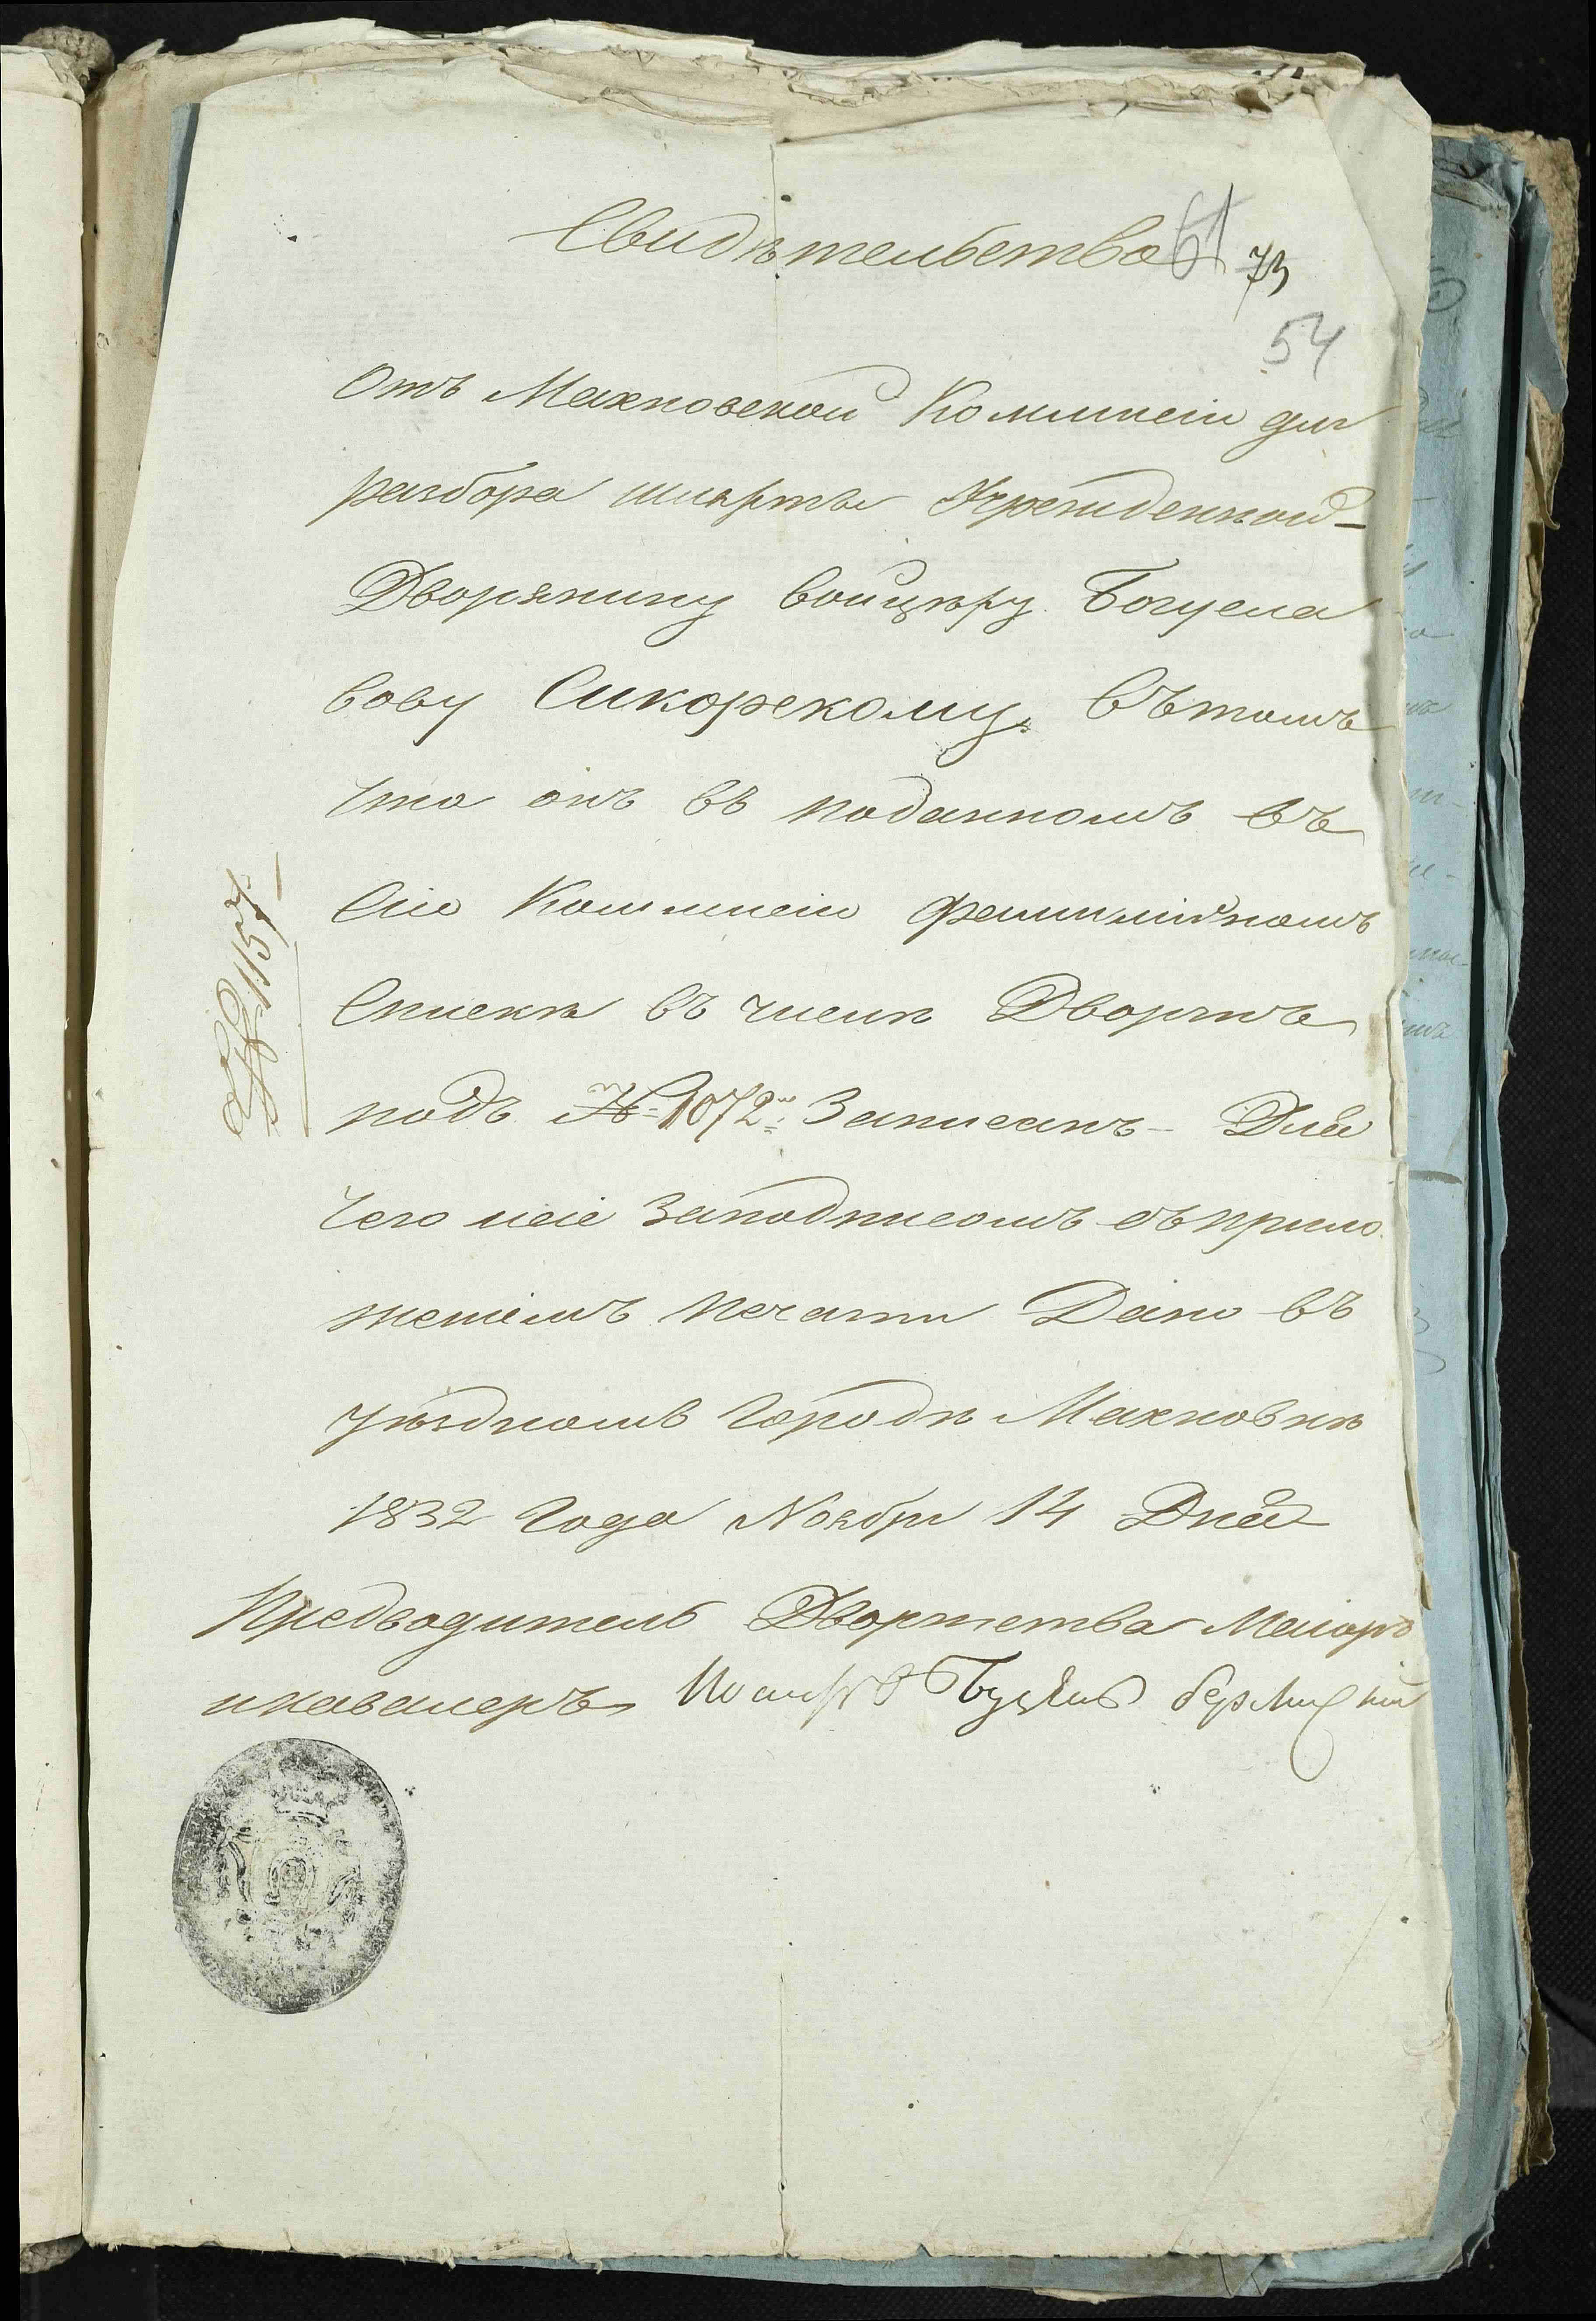 Свидѣтельство
61
73
54
Отъ Махновской Коммисіи для
разбора шляхты Учрежденной
Дворянину Войцѣху Богусла
вову Сикорскому. Въ томъ
Что онъ въ поданномъ въ
Сію Коммисію фамилійномъ
Спискѣ въ числѣ Дворянъ
подъ № 1072м Записанъ - Для
Чего и сіе Заподписомъ съ прило
женіемъ печати Дано въ
уѣздномъ Городѣ Махновкѣ
1832 Года Ноября 14 Дня
№ 1157.
Предводитель Дворянства Маіоръ
и кавалеръ